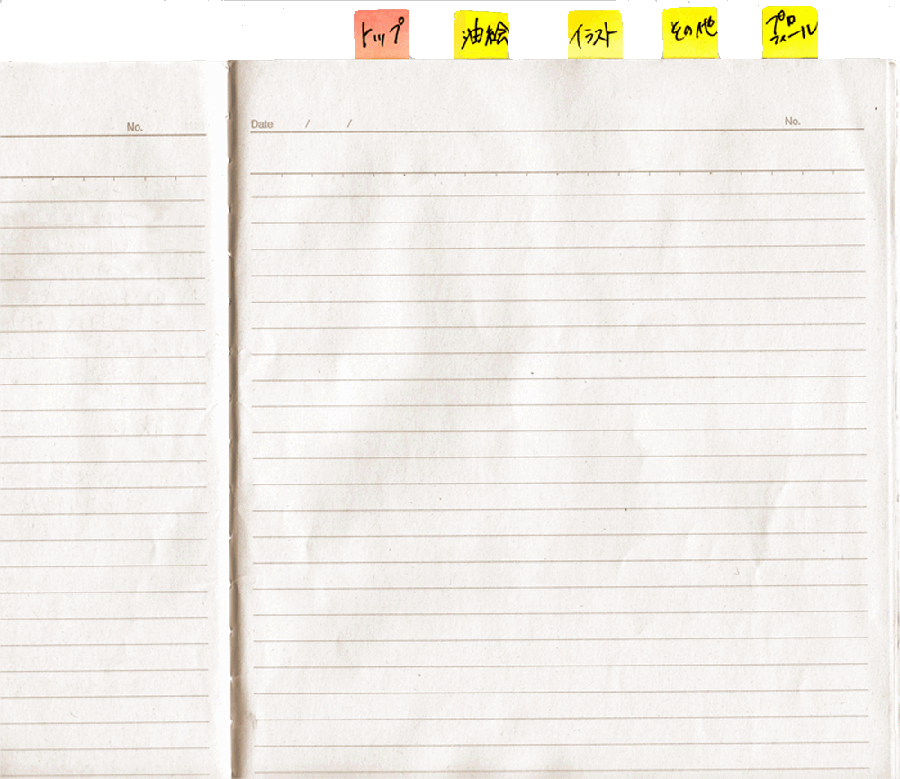 トップ
油絵
イラスト
その他
プロ
フィール
No.
Date / /
No.